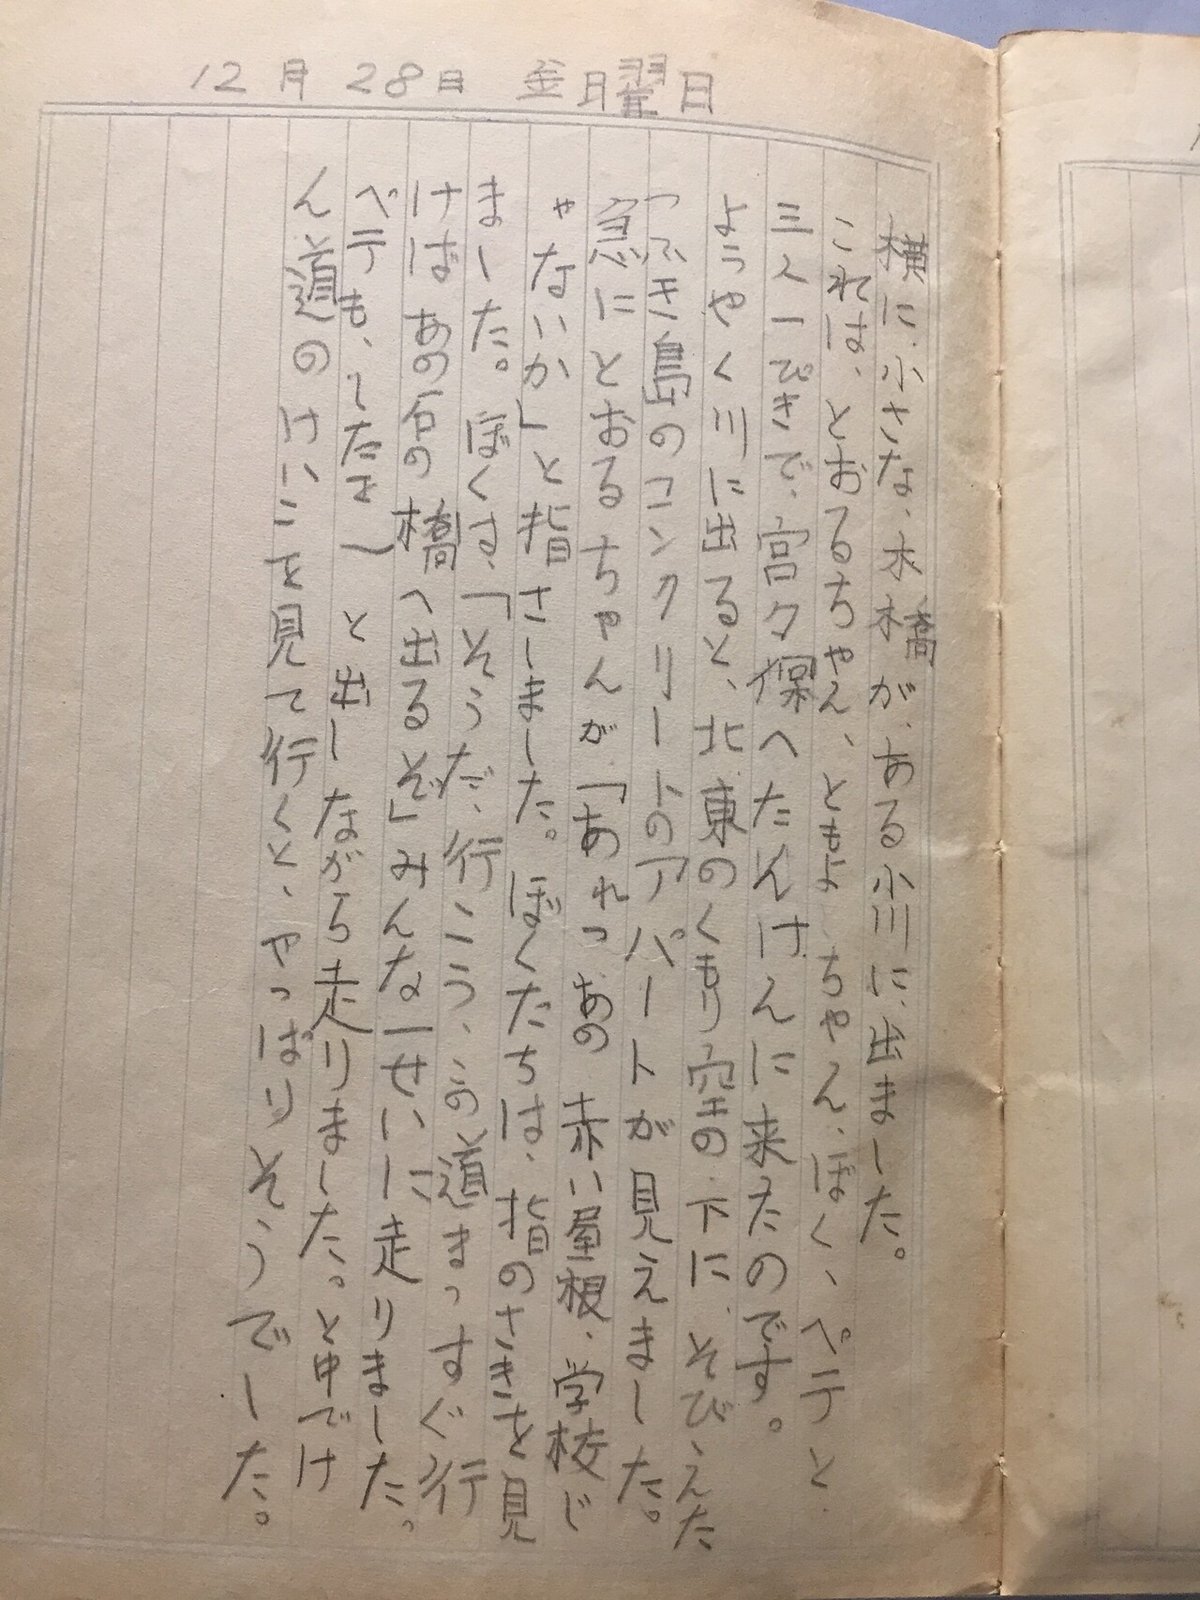 12月28日 金曜日
横に、小さな、木橋が、ある小川に、出ました。
これは、とおるちゃん、ともよちゃん、ぼく、ペテと
三人一ぴきで、宮久保へたんけんに来たのです。
ようやく川に出ると、北東のくもり空の下に、そびえた
つ、うき島のコンクリートのアパートが見えました。
急にとおるちゃんが「あれっあの赤い屋根、学校じ
ゃないか」と指さしました。ぼくたちは、指のさきを見
ました。ぼくは、「そうだ、行こう、この道まっすぐ行
けばあの石の橋へ出るぞ」みんな一せいに走りました。
ペテも、したを と出しながら走りました。と中でけ
ん道のけいこを見て行くと、やっぱりそうでした。